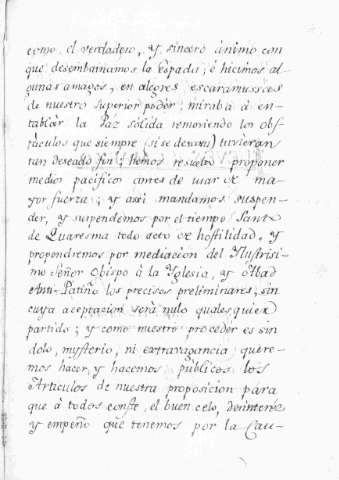 como, el verdadero, y sincero ánimo con
que desembainamos la Espada, é hicimos al-
gunas amagos, en alegres escaramusces
de nuestro superior podér; miraba à en-
tablár la Páz sólida removiendo los obs-
táculos que siempre (si se descuy) tuvieran
tan deseado fin; hemos resuelto proponer
medios pacificos antes de usar de ma-
yor fuerza; y assi mandamos suspen-
der, y suspendemos por el tiempo Santo
de Quaresma todo acto de hostilidad, y
propondremos por mediacion del Illustrisi-
mo Señor Obispo à la Yglesia, y Abad
Patiño los precisos preliminares, sin
cuya aceptazion será nulo qualesquier
partido; y como nuestro procedér es sin
dolo, mysterio, ni extravagancia quere-
mos hacer, y hacemos publicos los
Articulos de nuestra proposicion para
que à todos conste, el buen celo, desinteres
y empeño que tenemos por la Cau-